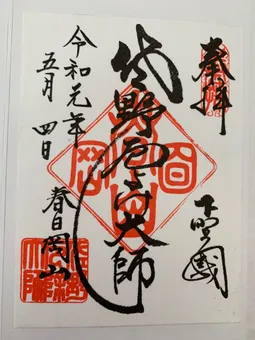 奉拝
下野國
佐野厄よけ大師
令和元年
五月四日
春日岡山